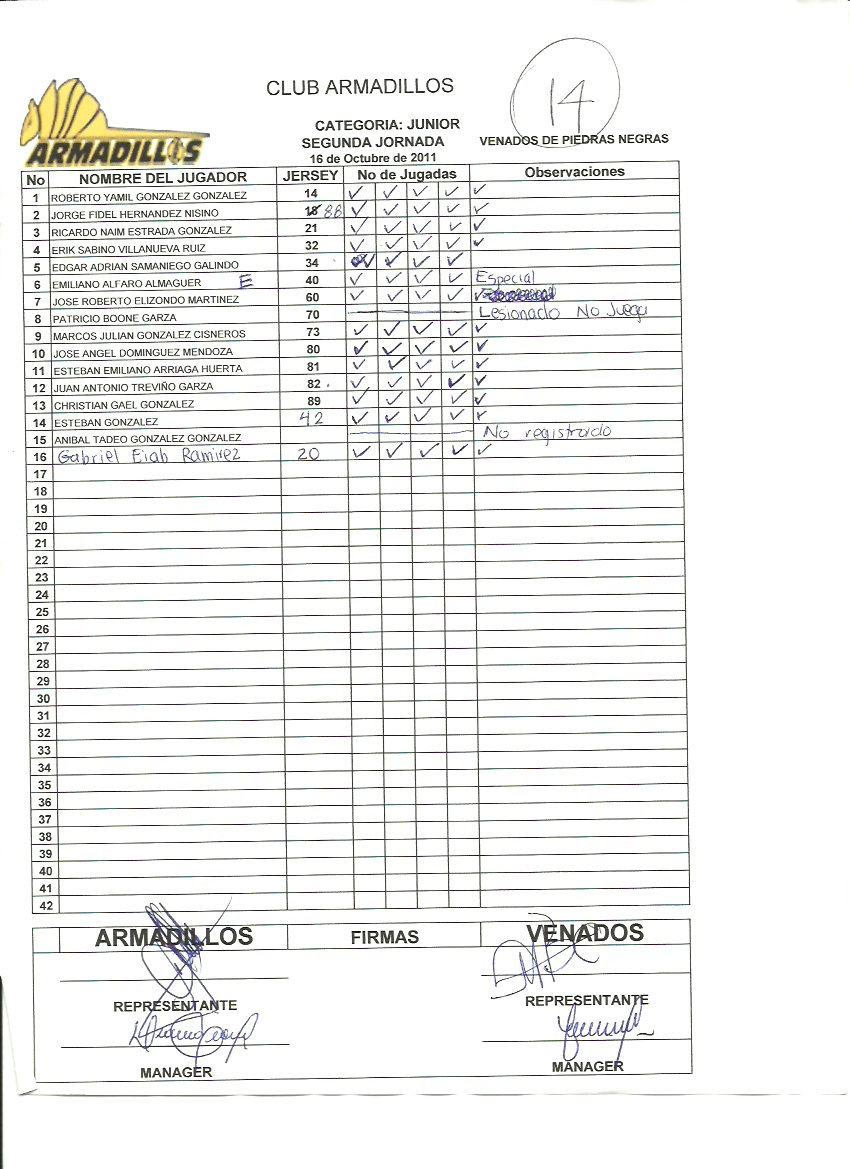 CLUB ARMADILLOS
14
ARMADILLOS
CATEGORIA: JUNIOR
SEGUNDA JORNADA
VENADOS DE PIEDRAS NEGRAS
16 de Octubre de 2011
No NOMBRE DEL JUGADOR JERSEY No de Jugadas Observaciones
1 ROBERTO YAMIL GONZALEZ GONZALEZ 14 ✓ ✓ ✓ ✓ ✓
2 JORGE FIDEL HERNANDEZ NISINO 18 88 ✓ ✓ ✓ ✓ ✓
3 RICARDO NAIM ESTRADA GONZALEZ 21 ✓ ✓ ✓ ✓ ✓
4 ERIK SABINO VILLANUEVA RUIZ 32 ✓ ✓ ✓ ✓ ✓
5 EDGAR ADRIAN SAMANIEGO GALINDO 34 ✓ ✓ ✓ ✓
6 EMILIANO ALFARO ALMAGUER E 40 ✓ ✓ ✓ ✓ Especial
7 JOSE ROBERTO ELIZONDO MARTINEZ 60 ✓ ✓ ✓ ✓ ✓
8 PATRICIO BOONE GARZA 70 Lesionado No Juega
9 MARCOS JULIAN GONZALEZ CISNEROS 73 ✓ ✓ ✓ ✓ ✓
10 JOSE ANGEL DOMINGUEZ MENDOZA 80 ✓ ✓ ✓ ✓ ✓
11 ESTEBAN EMILIANO ARRIAGA HUERTA 81 ✓ ✓ ✓ ✓ ✓
12 JUAN ANTONIO TREVIÑO GARZA 82 ✓ ✓ ✓ ✓ ✓
13 CHRISTIAN GAEL GONZALEZ 89 ✓ ✓ ✓ ✓ ✓
14 ESTEBAN GONZALEZ 42 ✓ ✓ ✓ ✓ ✓
15 ANIBAL TADEO GONZALEZ GONZALEZ No registrado
16 Gabriel Eiab Ramirez 20 ✓ ✓ ✓ ✓ ✓
17
18
19
20
21
22
23
24
25
26
27
28
29
30
31
32
33
34
35
36
37
38
39
40
41
42
ARMADILLOS FIRMAS VENADOS
REPRESENTANTE REPRESENTANTE
MANAGER MANAGER